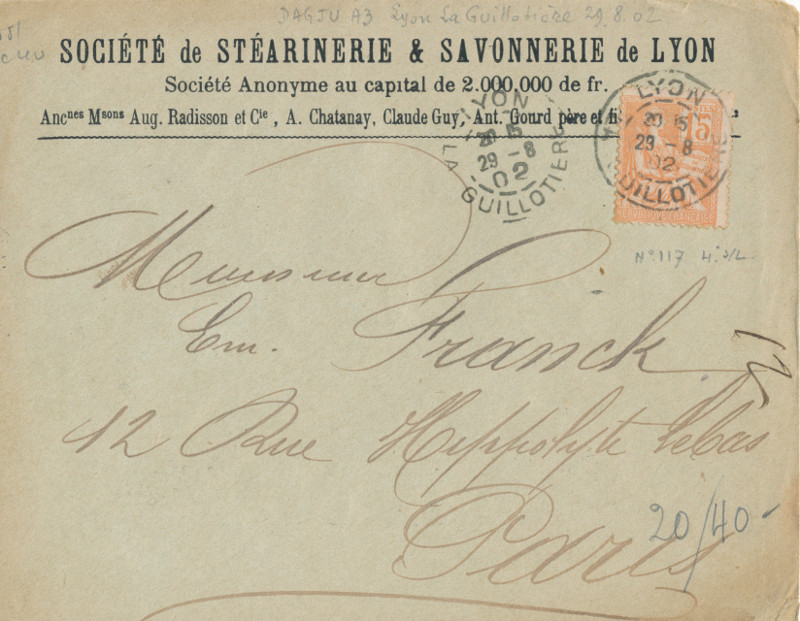 DAGJU A3 Lyon La Guillotière 29.8.02
SOCIÉTÉ de STÉARINERIE & SAVONNERIE de LYON
Société Anonyme au capital de 2.000.000 de fr.
Anc^nes M^sons Aug. Radisson et C^ie, A. Chatanay, Claude Guy, Ant. Gourd père et fi
LYON
20 5
29 - 8
02
LA GUILLOTIERE
LYON
20 5
29 - 8
02
GUILLOTIERE
15
N° 117
Monsieur
Em. Franck
12
12 Rue Hippolyte Lebas
Paris
20/40-